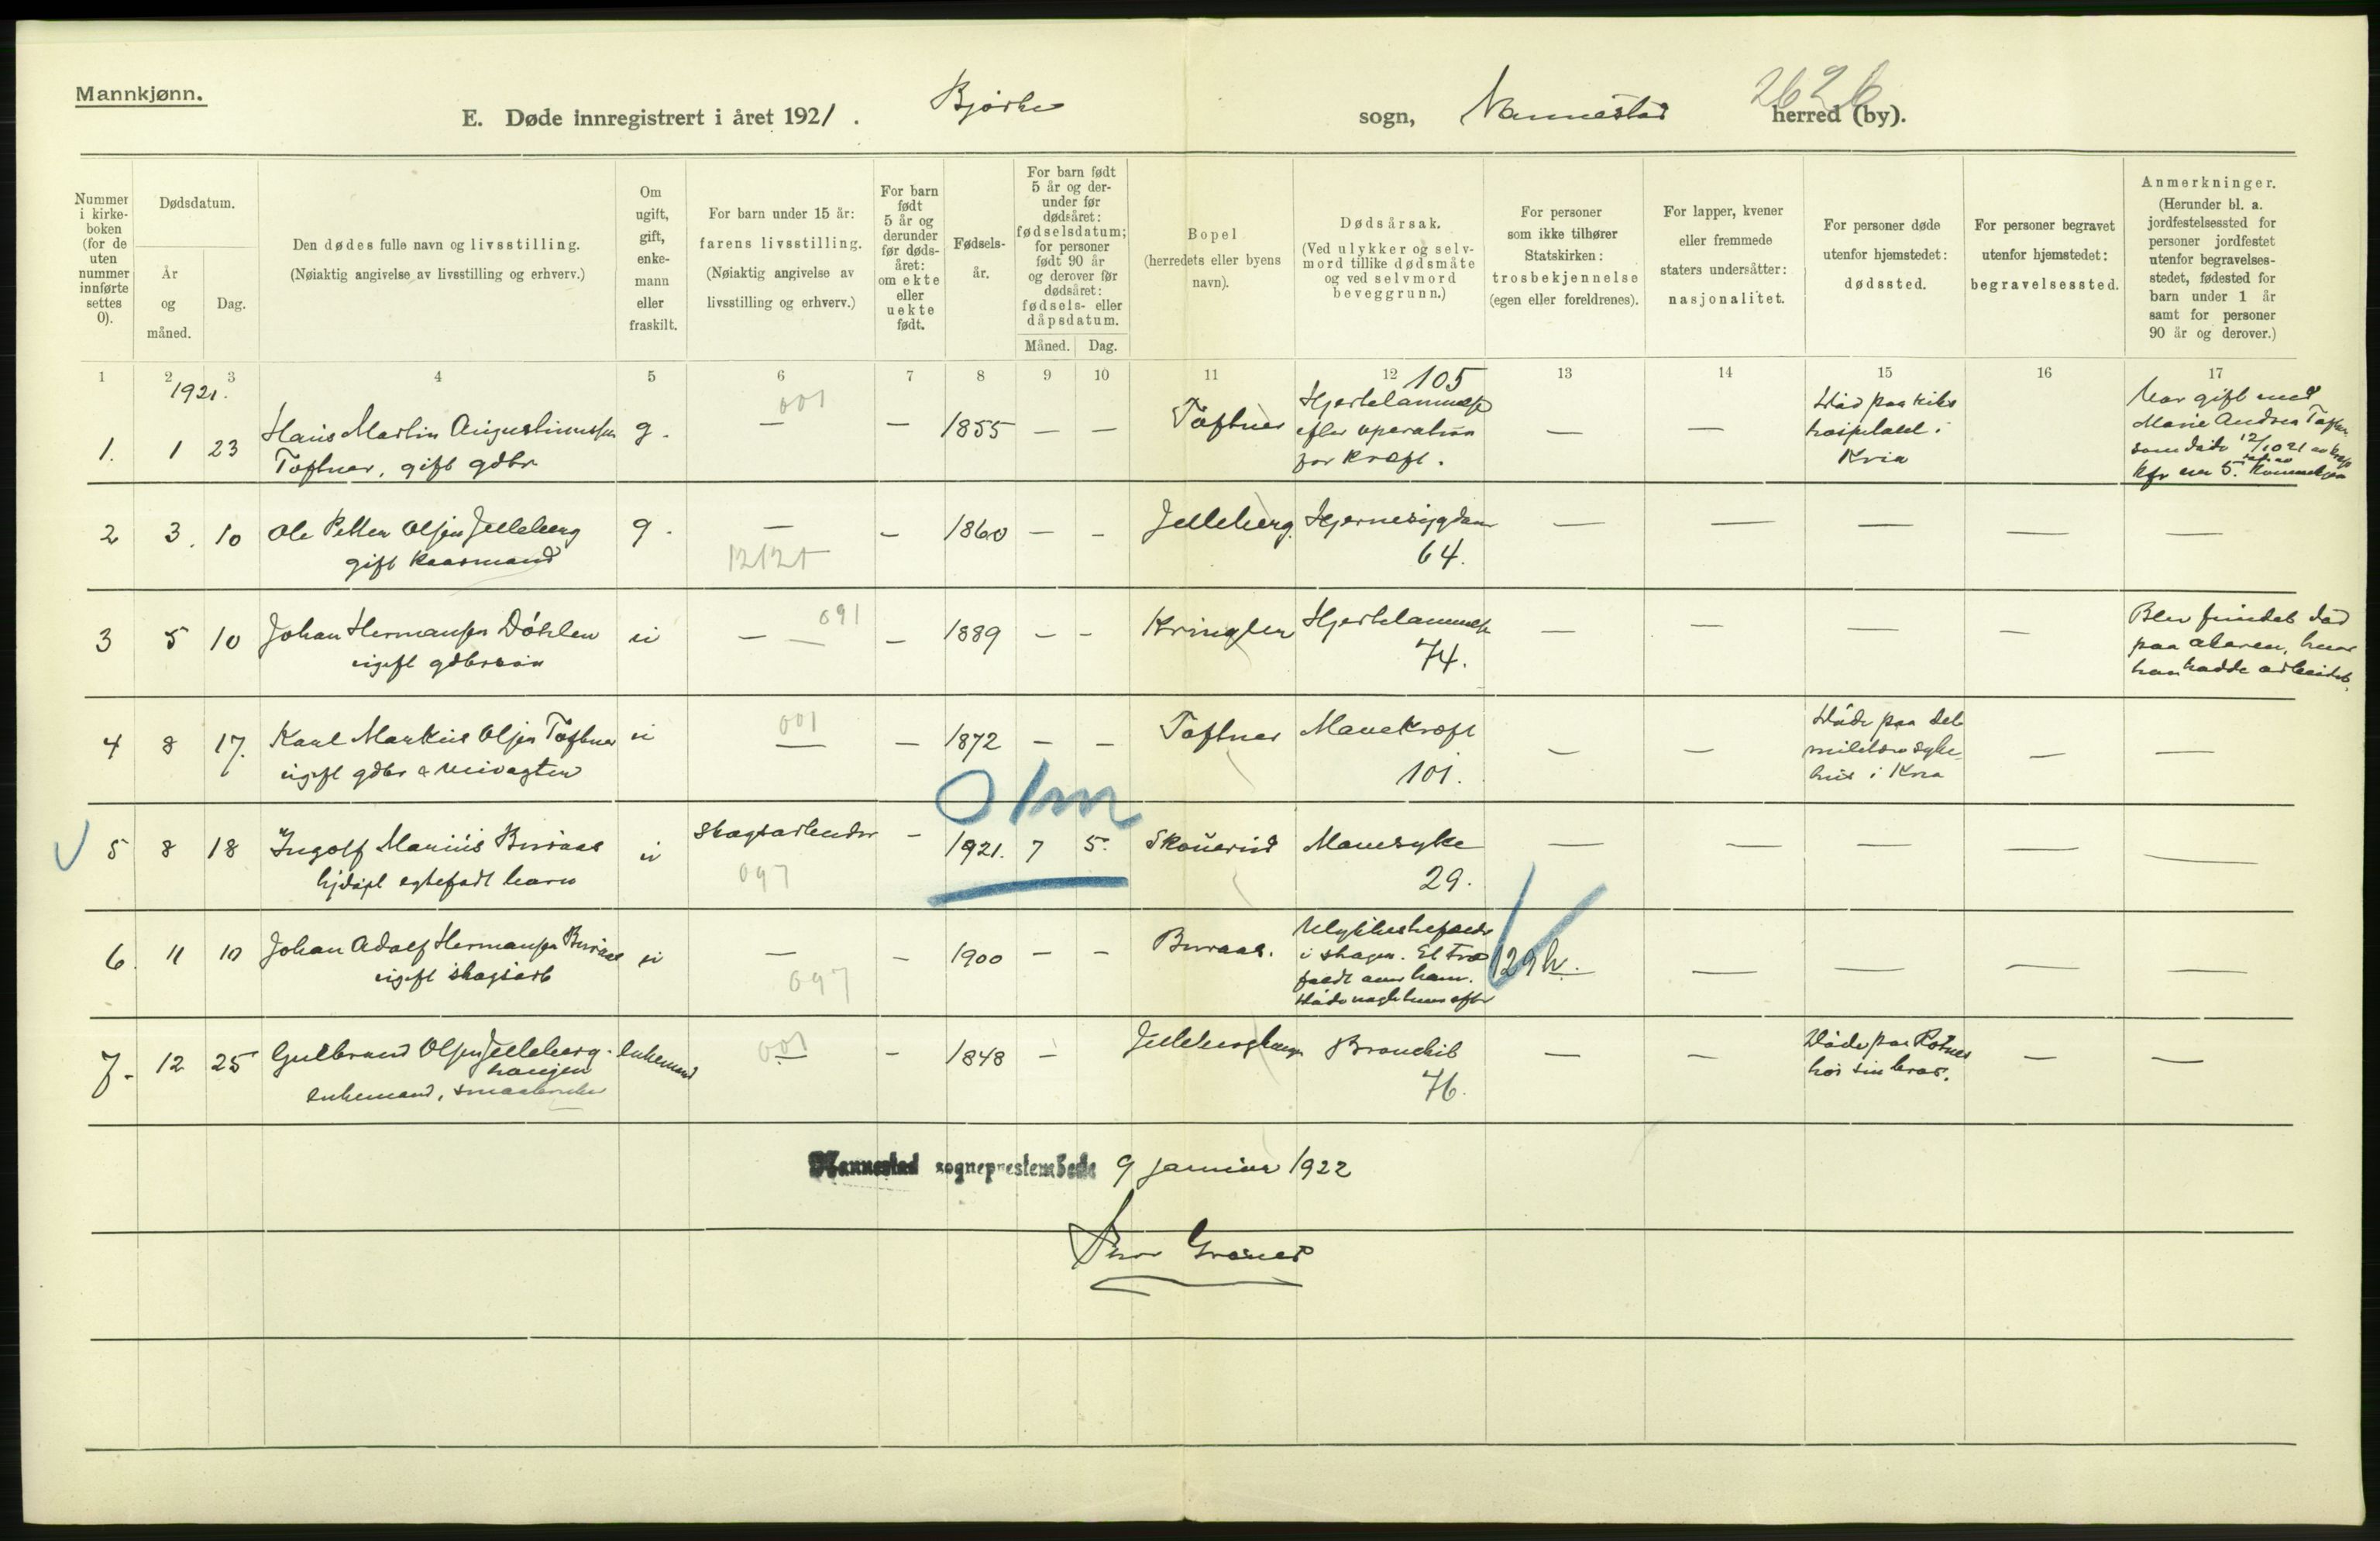 Mannkjønn.
E. Døde innregistrert i året 1921. Bjørke sogn, Nannestad herred (by).
2626
Nummer i kirke-boken (for de uten nummer innførte settes 0).
Dødsdatum.
År og måned.
Dag.
Den dødes fulle navn og livsstilling.
(Nøiaktig angivelse av livsstilling og erhverv.)
Om ugift, gift, enke-mann eller fraskilt.
For barn under 15 år:
farens livsstilling.
(Nøiaktig angivelse av livsstilling og erhverv.)
For barn født 5 år og derunder før døds-året: om ekte eller uekte født.
Fødsels-år.
For barn født 5 år og der-under før dødsåret: fødselsdatum; for personer født 90 år og derover før dødsåret: fødsels- eller dåpsdatum.
Måned. Dag.
Bopel
(herredets eller byens navn).
Dødsårsak.
(Ved ulykker og selv-mord tillike dødsmåte og ved selvmord beveggrunn.)
For personer som ikke tilhører Statskirken:
trosbekjennelse
(egen eller foreldrenes).
For lapper, kvener eller fremmede staters undersåtter:
nasjonalitet.
For personer døde utenfor hjemstedet:
dødssted.
For personer begravet utenfor hjemstedet:
begravelsessted.
Anmerkninger.
(Herunder bl. a. jordfestelsessted for personer jordfestet utenfor begravelses-stedet, fødested for barn under 1 år samt for personer 90 år og derover.)
1 2 3 4 5 6 7 8 9 10 11 12 13 14 15 16 17
1921.
1. 1 23 Hans Martin Augustinussen g. — 001 — 1855 — — Toftner Hjertelammelse 105 — —
Toftner, gift gdbr
efter operation
for kræft.
Død paa Riks
hospitalet i
Kria
Var gift med
Marie Andrea Toftner
som døde 12/10 21 av kræft
2 3. 10 Ole Petter Olsen Jelleberg g. — 12121 — 1860 — — Jelleberg. Hjernesygdom — — — — —
gift
64.
3 5 10 Johan Hermansen Döhlen u — 091 — 1889 — — Kringler Hjertelammelse — — — —
ugift gdbrsøn
74.
Blev fundet død
paa akeren, hvor
han hadde arbeidet.
4 8 17. Karl Markus Olsen Toftner u 001 — — 1872 — — Toftner Mavekræft — — — —
ugift gdbr &
101.
Døde paa det
militære syke-
hus i Kria
0 1m
5 8 18 Ingolf Marius Buraas u skogsarbeider — 1921. 7 5. Skouerud Mavesyke — — — — —
hjdøpt egtefødt barn
097
29.
6. 11 10 Johan Adolf Hermansen Buraas u — 097 — 1900 — — Buraas. Ulykkestilfælde 129 h. — — — —
ugift skogsarb
i skogen. Et træ
faldt over ham.
Døde nogle timer efter
7. 12 25 Gulbrand Olsen Jelleberg- enkemand 001 — — 1848 — Jelleberghaugen Bronchit — — — —
haugen
enkemand, smaabruker
76.
Døde paa Rotnes
hos sin bror.
Nannestad sogneprestembede 9 januar 1922